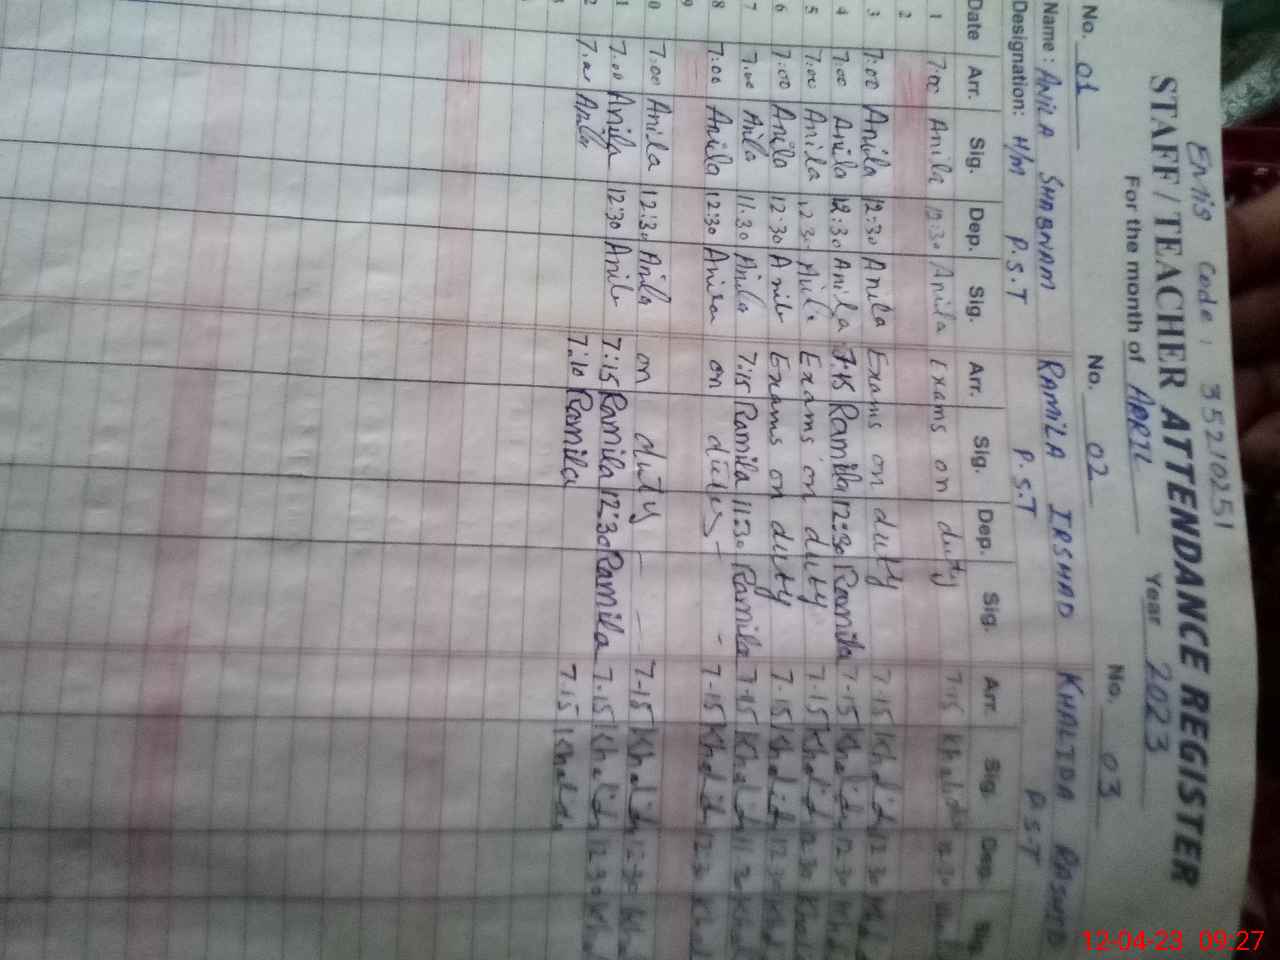 Emis Code : 35210251
STAFF / TEACHER ATTENDANCE REGISTER
For the month of APRIL Year 2023
No. 01 No. 02 No. 03
Name : ANILA SHABNAM RAMILA IRSHAD KHALIDA RASHID
Designation: H/M P.S.T P.S.T P.S.T
Date Arr. Sig. Dep. Sig. Arr. Sig. Dep. Sig. Arr. Sig. Dep. Sig.
1 7:00 Anila 12:30 Anila Exams on duty 7:15 Khalida 12:30
2
3 7:00 Anila 12:30 Anila Exams on duty 7-15 Khalida 12:30
4 7:00 Anila 12:30 Anila 7:15 Ramila 12:30 Ramila 7-15 Khalida 12:30
5 7:00 Anila 12:30 Anila Exams on duty 7-15 Khalida 12:30
6 7:00 Anila 12:30 Anila Exams on duty 7-15 Khalida 12:30
7 7:00 Anila 11:30 Anila 7:15 Ramila 11:30 Ramila 7-15 Khalida 11:30
8 7:00 Anila 12:30 Anila on duty - - 7-15 Khalida 12:30
9
10 7:00 Anila 12:30 Anila on duty - - 7-15 Khalida 12:30
11 7:00 Anila 12:30 Anila 7:15 Ramila 12:30 Ramila 7-15 Khalida 12:30
2 7:00 Anila 7:10 Ramila 7:15 Khalida
12-04-23 09:27